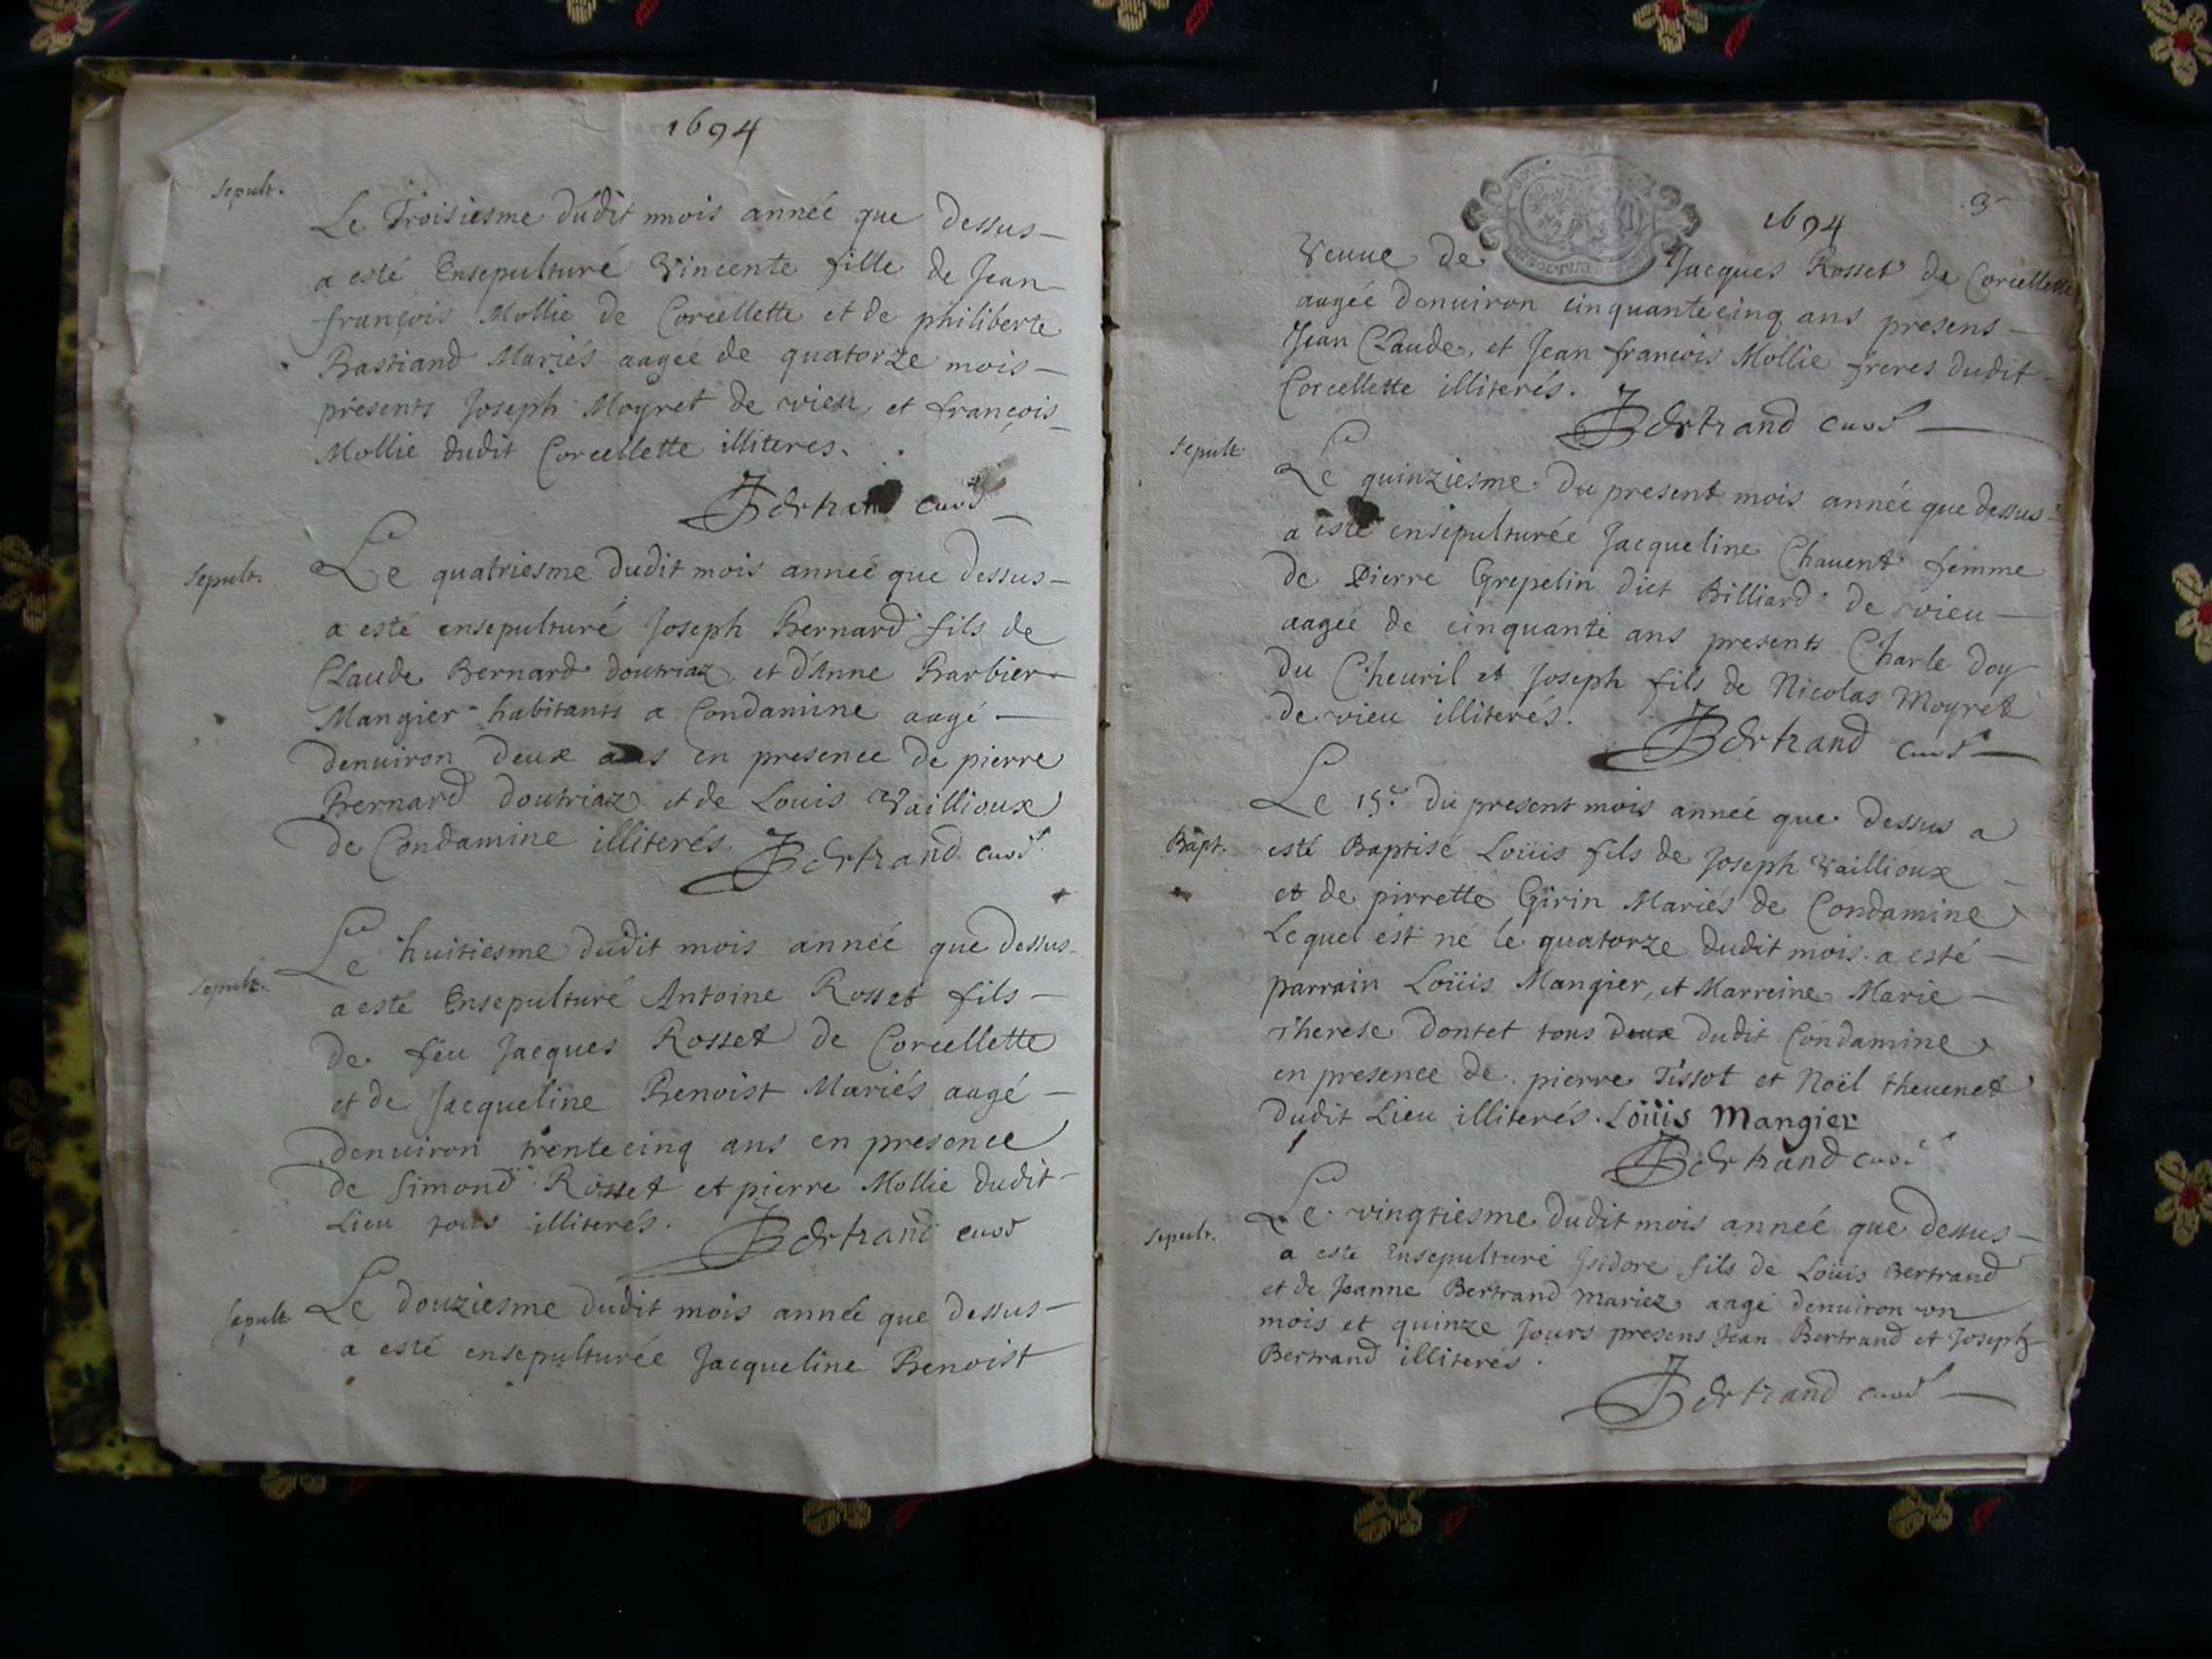 1694
sepult.
Le Troisiesme dudit mois année que dessus
a esté Ensepulturé Vincente fille de Jean
françois Mollie de Corcellette et de philiberte
Bastiand Mariés aagée de quatorze mois
présents Joseph Moyret de vieu et françois
Mollie dudit Corcellette illiteres.
Bertrand curé
sepult.
Le quatriesme dudit mois année que dessus
a esté ensepulturé Joseph Bernard fils de
Claude Bernard doutriaz et d'Anne Barbier
Mangier habitants a Condamine aagé
denuiron deux ans en presence de pierre
Bernard doutriaz et de Louis Vaillioux
de Condamine illiterés.
Bertrand curé
sepult.
Le huitiesme dudit mois année que dessus
a esté Ensepulturé Antoine Rosset fils
de feu Jacques Rosset de Corcellette
et de Jacqueline Benoist Mariés aagé
denuiron trente cinq ans en presence
de Simond Rosset et pierre Mollie dudit
Lieu tous illiterés.
Bertrand curé
sepult.
Le douziesme dudit mois année que dessus
a esté ensepulturée Jacqueline Benoist
3
1694
Veuue de Jacques Rosset de Corcellette
aagée denuiron cinquante cinq ans presens
Jean Claude, et Jean francois Mollie freres dudit
Corcellette illiterés.
Bertrand curé
sepult.
Le quinziesme du present mois année que dessus
a esté ensepulturée Jacqueline Chauent femme
de Pierre Grepelin dict Billiard de vieu
aagée de cinquante ans presents Charle doy
du Cheuril et Joseph fils de Nicolas Moyret
de vieu illiterés.
Bertrand curé
Bapt.
Le 15e du present mois année que dessus a
esté Baptisé Loüis fils de Joseph Vaillioux
et de pirrette Girin Mariés de Condamine
Lequel est né le quatorze dudit mois. a esté
parrain Loüis Mangier, et Marreine Marie
Therese Dontet tous deux dudit Condamine
en presence de pierre Tissot et Noël theuenet
dudit Lieu illiterés. Loüis Mangier
Bertrand curé
sepult.
Le vingtiesme dudit mois année que dessus
a este Ensepulturé Isidore fils de Loüis Bertrand
et de Jeanne Bertrand mariez aagé denuiron vn
mois et quinze Jours presens Jean Bertrand et Joseph
Bertrand illiterés.
Bertrand curé